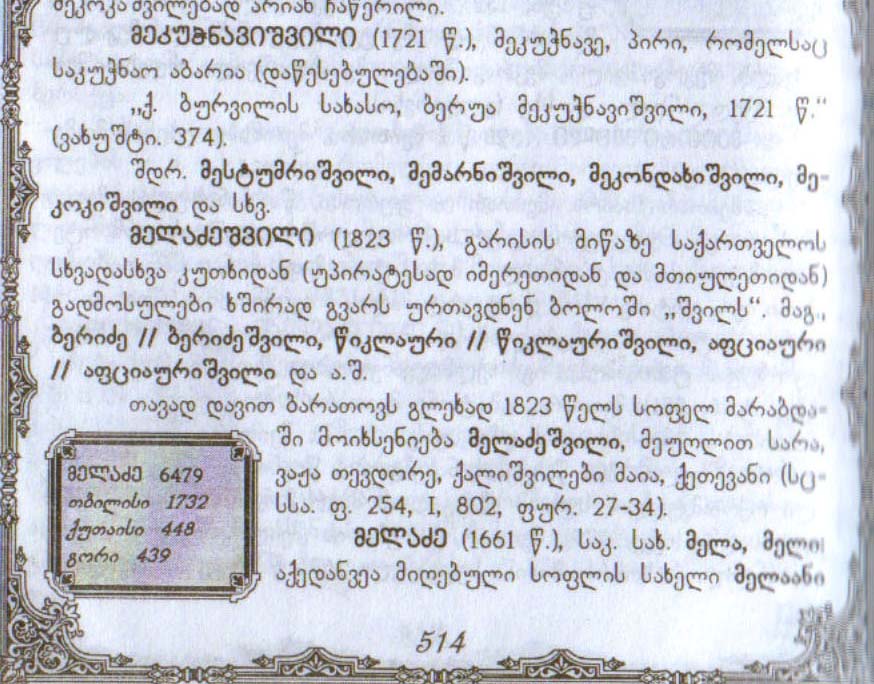 მეკოკაშვილებად არიან ჩაწერილი.
მეკუჭნავიშვილი (1721 წ.), მეკუჭნავე, პირი, რომელსაც
საკუჭნაო აბარია (დაწესებულებაში).
„ქ. ბურვილის სახასო, ბერუა მეკუჭნავიშვილი, 1721 წ.“
(ვახუშტი. 374).
შდრ. მესტუმრიშვილი, მემარნიშვილი, მეკონდახიშვილი, მე-
კოკიშვილი და სხვ.
მელაძეშვილი (1823 წ.), გარისის მიწაზე საქართველოს
სხვადასხვა კუთხიდან (უპირატესად იმერეთიდან და მთიულეთიდან)
გადმოსულები ხშირად გვარს ურთავდნენ ბოლოში „შვილს“, მაგ.,
ბერიძე // ბერიძეშვილი, წიკლაური // წიკლაურიშვილი, აფციაური
// აფციაურიშვილი და ა.შ.
თავად დავით ბარათოვს გლეხად 1823 წელს სოფელ მარაბდა-
ში მოიხსენიება მელაძეშვილი, მეუღლით სარა,
ვაჟა თევდორე, ქალიშვილები მაია, ქეთევანი (სც-
სსა. ფ. 254, I, 802, ფურ. 27-34).
მელაძე (1661 წ.), საკ. სახ. მელა, მელი
აქედანვეა მიღებული სოფლის სახელი მელაანი
მელაძე 6479
თბილისი 1732
ქუთაისი 448
გორი 439
514